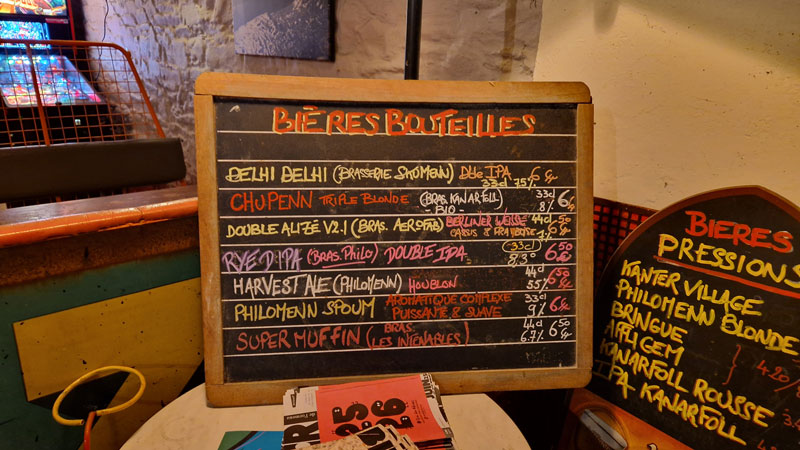 BIÈRES BOUTEILLES
DELHI DELHI (BRASSERIE SKUMENN) Dble IPA 6€
33cl 7.5%
CHUPENN TRIPLE BLONDE (BRAS. KANARFOLL) 33cl 6€
- BIO - 8%
DOUBLE ALIZÉ V2.1 (BRAS. AEROFAB) BERLINER WEISSE 44cl 6€50
CASSIS & FRAMBOISE
RYE D.IPA (BRAS. PHILO) DOUBLE IPA (33cl) 6€50
8.3°
HARVEST ALE (PHILOMENN) HOUBLON 44cl 6€50
PHILOMENN SPOUM AROMATIQUE COMPLEXE 33cl 6€
PUISSANTE & SUAVE 9%
SUPER MUFFIN (BRAS. LES INTENABLES) 44cl 6€50
6.7%
BIERES
PRESSIONS
KANTER VILLAGE
PHILOMENN BLONDE
BRINGUE
AFFLIGEM
KANARFOLL ROUSSE
IPA KANARFOLL
4.20